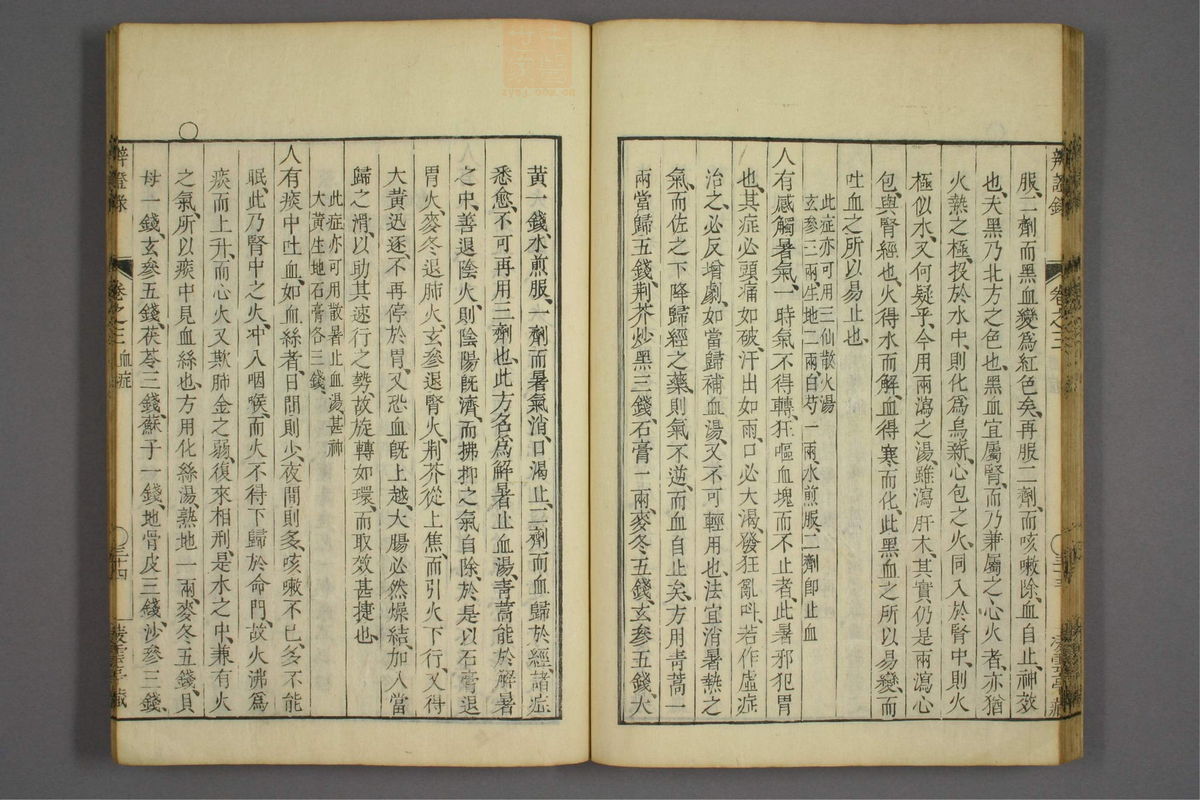 服、二劑而黑血變爲紅色矣、再服二劑、而咳嗽除、血自止、神效
也、夫黑乃北方之色也、黑血宜屬腎、而乃兼屬之心火者、亦猶
火熱之極、投於水中、則化爲烏薪、心包之火、同入於腎中、則火
極似水、又何疑乎、今用兩瀉之湯、雖瀉肝木、其實仍是兩瀉心
包、與腎經也、火得水而解、血得寒而化、此黑血之所以易變、而
吐血之所以易止也、
此症亦可用三仙散火湯
玄參三兩、生地二兩、白芍一兩、水煎服、二劑卽止血
人有感觸暑氣、一時氣不得轉、狂嘔血塊而不止者、此暑邪犯胃
也、其症必頭痛如破、汗出如雨、口必大渴、發狂亂呌、若作虛症
治之、必反增劇、如當歸補血湯、又不可輕用也、法宜消暑熱之
氣、而佐之下降歸經之藥、則氣不逆、而血自止矣、方用靑蒿一
兩、當歸五錢、荆芥炒黑三錢、石膏一兩、麥冬五錢、玄參五錢、大
辨證錄
卷之三
黃一錢、水煎服、一劑而暑氣消、口渴止、二劑而血歸於經、諸症
悉愈、不可再用三劑也、此方名爲解暑止血湯、靑蒿能於解暑
之中、善退陰火、則陰陽旣濟、而拂抑之氣自除、於是以石膏退
胃火、麥冬退肺火、玄參退腎火、荆芥從上焦、而引火下行、又得
大黃迅逐、不再停於胃、又恐血旣上越、大腸必然燥結、加入當
歸之滑、以助其速行之勢、故旋轉如環、而取效甚捷也、
此症亦可用散暑止血湯甚神
大黃生地石膏各三錢、
人有痰中吐血、如血絲者、日間則少、夜間則多、咳嗽不已、多不能
眠、此乃腎中之火、冲入咽喉、而火不得下歸於命門、故火沸爲
痰而上升、而心火又欺肺金之弱、復來相刑、是水之中、兼有火
之氣、所以痰中見血絲也、方用化絲湯、熟地一兩、麥冬五錢、貝
母一錢、玄參五錢、茯苓三錢、蘇子一錢、地骨皮三錢、沙參三錢、
辨證錄
卷之三 血症
三十四